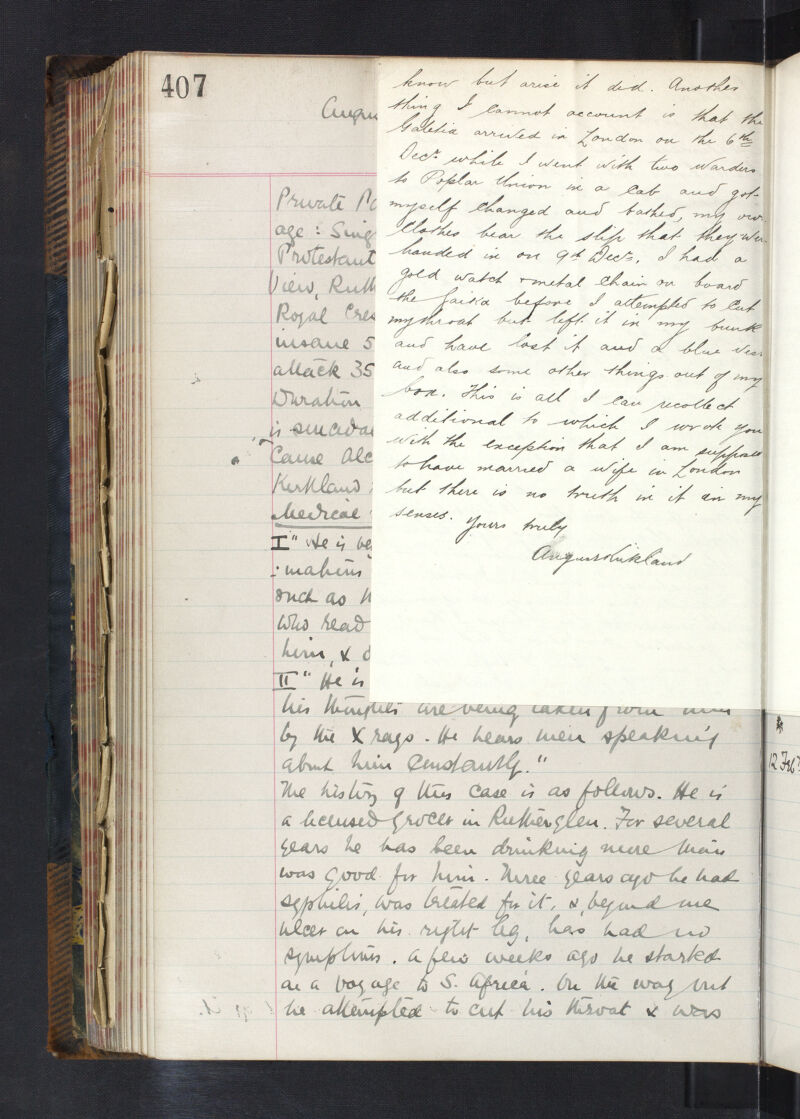 407
know but arise it did. Another
thing I cannot account is that the
arrived in London on the 6th
Decr. while I went with two Warders
to Poplar Union in a Cab and got
myself changed and bathed, my own
Clothes bear the slip that they wer
handed in on 9th Decr. I had a
gold watch & metal Chain on board
the before I attempted to Cut
my throat but left it in my bunk
and have lost it and a blue Ves
and also some other things out of my
box. This is all I can recollect
additional to which I wrote you
with the exception that I am suppose
to have married a wife in London
but there is no truth in it in my
senses. Yours truly
Angus Kirkland
Angu
Private Pa
age: Sing
Protestant
View, Ruth
Royal Cres
insane 5
attack 35
Duration
is suicidal
Cause Alc
Kirkland
Medical
I "He is be
:making
such as
who read
him, & d
II "He is
his thoughts are being taken from him
by the X rays. He hears men speaking
about him constantly."
The history of this case is as follows. He is
a licensed grocer in Rutherglen. For several
years he has been drinking more than
was good for him. Three years ago he had
syphilis, was treated for it, &, beyond one
ulcer on his right leg, has had no
symptoms. A few weeks ago he started
on a voyage to S. Africa. On the way out
he attempted to cut his throat & was
12 Feb